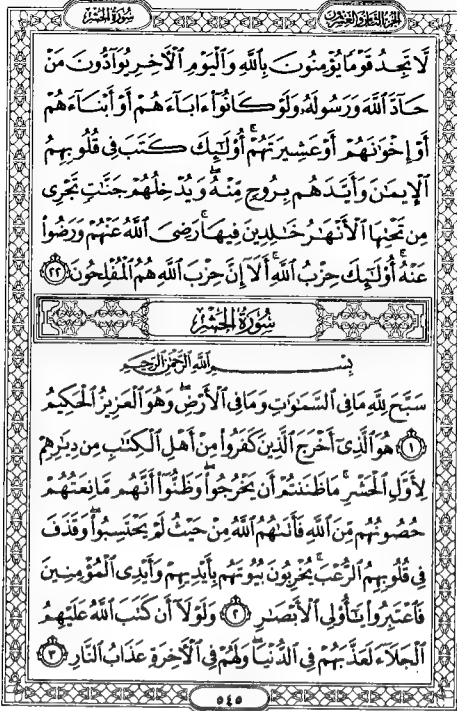 الجزء الثامن والعشرون سورة الحشر
لَّا تَجِدُ قَوْمًا يُؤْمِنُونَ بِٱللَّهِ وَٱلْيَوْمِ ٱلْأَخِرِ يُوَآدُّونَ مَنْ
حَآدَّ ٱللَّهَ وَرَسُولَهُۥ وَلَوْ كَانُوٓا۟ ءَابَآءَهُمْ أَوْ أَبْنَآءَهُمْ
أَوْ إِخْوَٰنَهُمْ أَوْ عَشِيرَتَهُمْ ۚ أُو۟لَٰٓئِكَ كَتَبَ فِى قُلُوبِهِمُ
ٱلْإِيمَٰنَ وَأَيَّدَهُم بِرُوحٍ مِّنْهُ ۖ وَيُدْخِلُهُمْ جَنَّٰتٍ تَجْرِى
مِن تَحْتِهَا ٱلْأَنْهَٰرُ خَٰلِدِينَ فِيهَا ۚ رَضِىَ ٱللَّهُ عَنْهُمْ وَرَضُوا۟
عَنْهُ ۚ أُو۟لَٰٓئِكَ حِزْبُ ٱللَّهِ ۚ أَلَآ إِنَّ حِزْبَ ٱللَّهِ هُمُ ٱلْمُفْلِحُونَ ٢٢
سُورَةُ الحَشْرِ
بِسْمِ ٱللَّهِ ٱلرَّحْمَٰنِ ٱلرَّحِيمِ
سَبَّحَ لِلَّهِ مَا فِى ٱلسَّمَٰوَٰتِ وَمَا فِى ٱلْأَرْضِ ۖ وَهُوَ ٱلْعَزِيزُ ٱلْحَكِيمُ
١ هُوَ ٱلَّذِىٓ أَخْرَجَ ٱلَّذِينَ كَفَرُوا۟ مِنْ أَهْلِ ٱلْكِتَٰبِ مِن دِيَٰرِهِمْ
لِأَوَّلِ ٱلْحَشْرِ ۚ مَا ظَنَنتُمْ أَن يَخْرُجُوا۟ ۖ وَظَنُّوٓا۟ أَنَّهُم مَّانِعَتُهُمْ
حُصُونُهُم مِّنَ ٱللَّهِ فَأَتَىٰهُمُ ٱللَّهُ مِنْ حَيْثُ لَمْ يَحْتَسِبُوا۟ ۖ وَقَذَفَ
فِى قُلُوبِهِمُ ٱلرُّعْبَ ۚ يُخْرِبُونَ بُيُوتَهُم بِأَيْدِيهِمْ وَأَيْدِى ٱلْمُؤْمِنِينَ
فَٱعْتَبِرُوا۟ يَٰٓأُو۟لِى ٱلْأَبْصَٰرِ ٢ وَلَوْلَآ أَن كَتَبَ ٱللَّهُ عَلَيْهِمُ
ٱلْجَلَآءَ لَعَذَّبَهُمْ فِى ٱلدُّنْيَا ۖ وَلَهُمْ فِى ٱلْأَخِرَةِ عَذَابُ ٱلنَّارِ ٣
٥٤٥